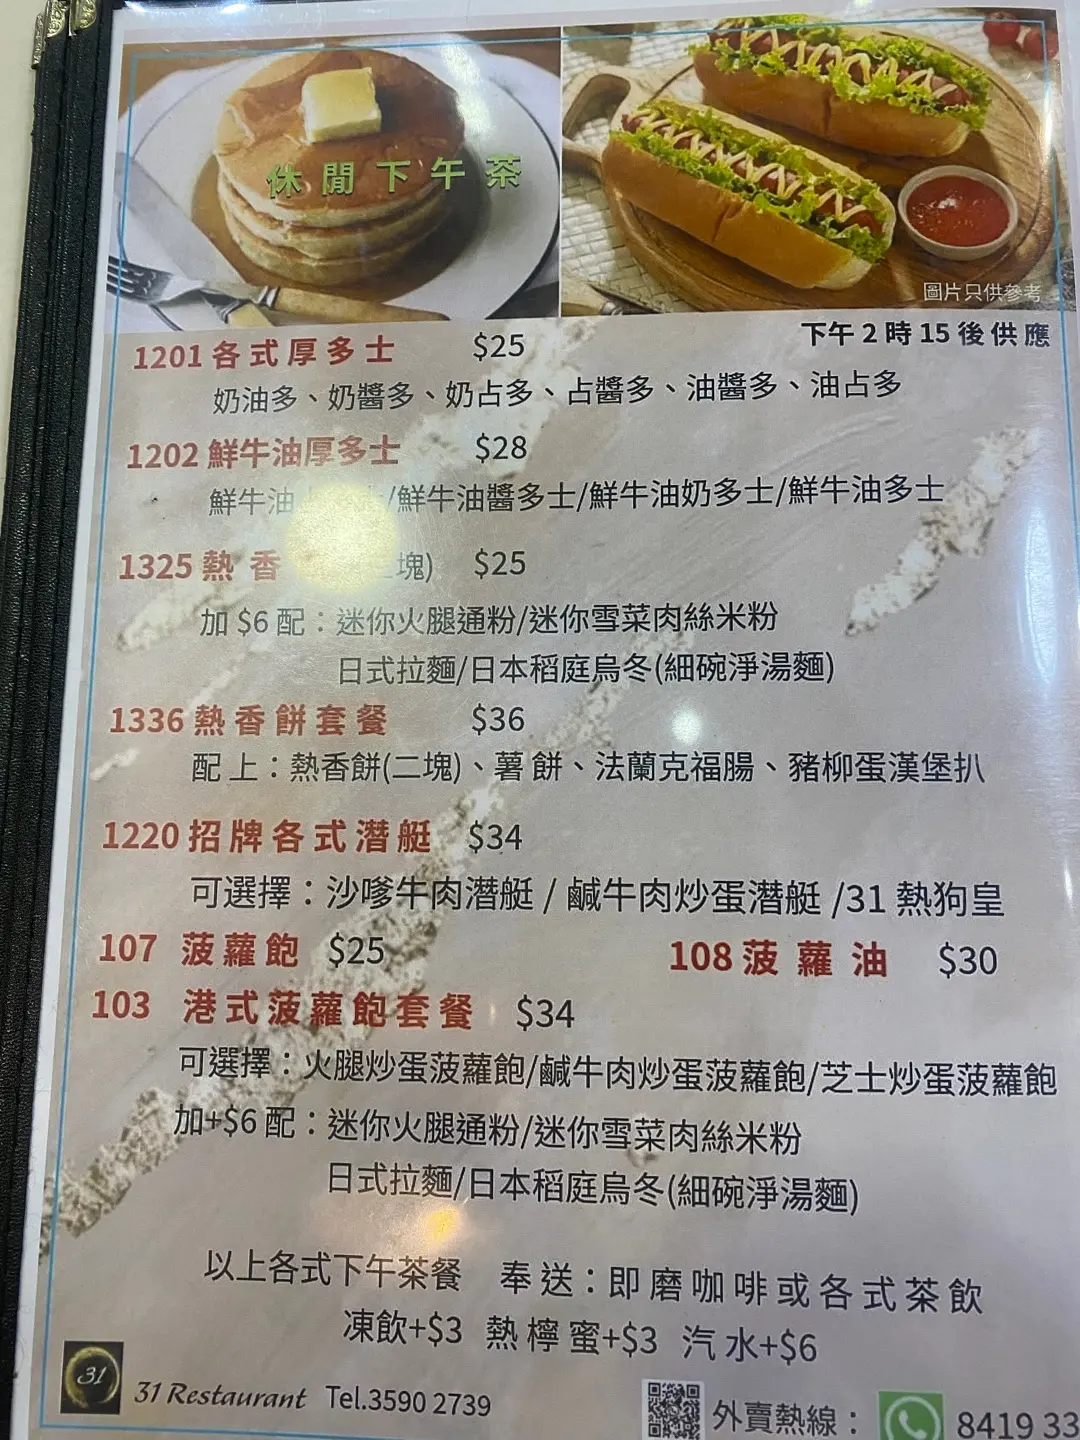 休閒下午茶
圖片只供參考
下午2時15後供應
1201 各式厚多士 $25
奶油多、奶醬多、奶占多、占醬多、油醬多、油占多
1202 鮮牛油厚多士 $28
鮮牛油 /鮮牛油醬多士/鮮牛油奶多士/鮮牛油多士
1325 熱香 塊) $25
加 $6 配：迷你火腿通粉/迷你雪菜肉絲米粉
日式拉麵/日本稻庭烏冬(細碗淨湯麵)
1336 熱香餅套餐 $36
配上：熱香餅(二塊)、薯餅、法蘭克福腸、豬柳蛋漢堡扒
1220 招牌各式潛艇 $34
可選擇：沙嗲牛肉潛艇 / 鹹牛肉炒蛋潛艇 /31 熱狗皇
107 菠蘿飽 $25 108 菠蘿油 $30
103 港式菠蘿飽套餐 $34
可選擇：火腿炒蛋菠蘿飽/鹹牛肉炒蛋菠蘿飽/芝士炒蛋菠蘿飽
加+$6 配：迷你火腿通粉/迷你雪菜肉絲米粉
日式拉麵/日本稻庭烏冬(細碗淨湯麵)
以上各式下午茶餐 奉送：即磨咖啡或各式茶飲
凍飲+$3 熱檸蜜+$3 汽水+$6
31 31 Restaurant Tel.3590 2739
外賣熱線： 8419 33